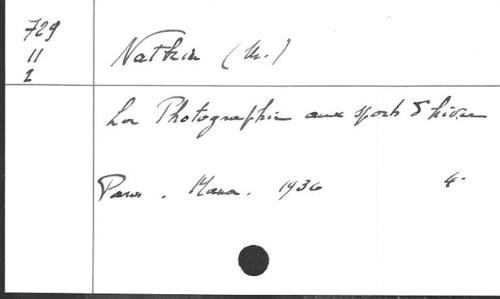 729
11
2
Natkin (M.)
La Photographie aux sports d'hiver
Paris. Mana. 1936 4.